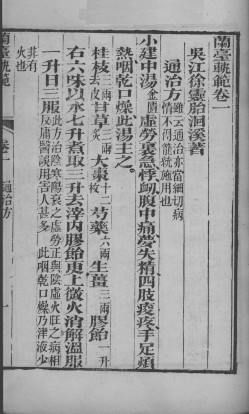 蘭臺軌範卷一
吳江徐靈胎洄溪著
通治方 雖云通治亦當細切病情不得籠統施用也
小建中湯 金匱 虛勞裏急悸衄腹中痛夢失精四肢痠疼手足煩
熱咽乾口燥此湯主之
桂枝去皮三兩 甘草炙三兩 大棗十二枚 芍藥六兩 生薑三兩 膠飴一升
右六味以水七升煮取三升去滓內膠飴更上微火消解溫服
一升日三服 此方治陰寒陽衰之虛勞正與陰虛火旺之病相反庸醫誤用害人甚多此咽乾口燥乃津液少
非有火也
蘭臺軌範
卷一
通治方
一